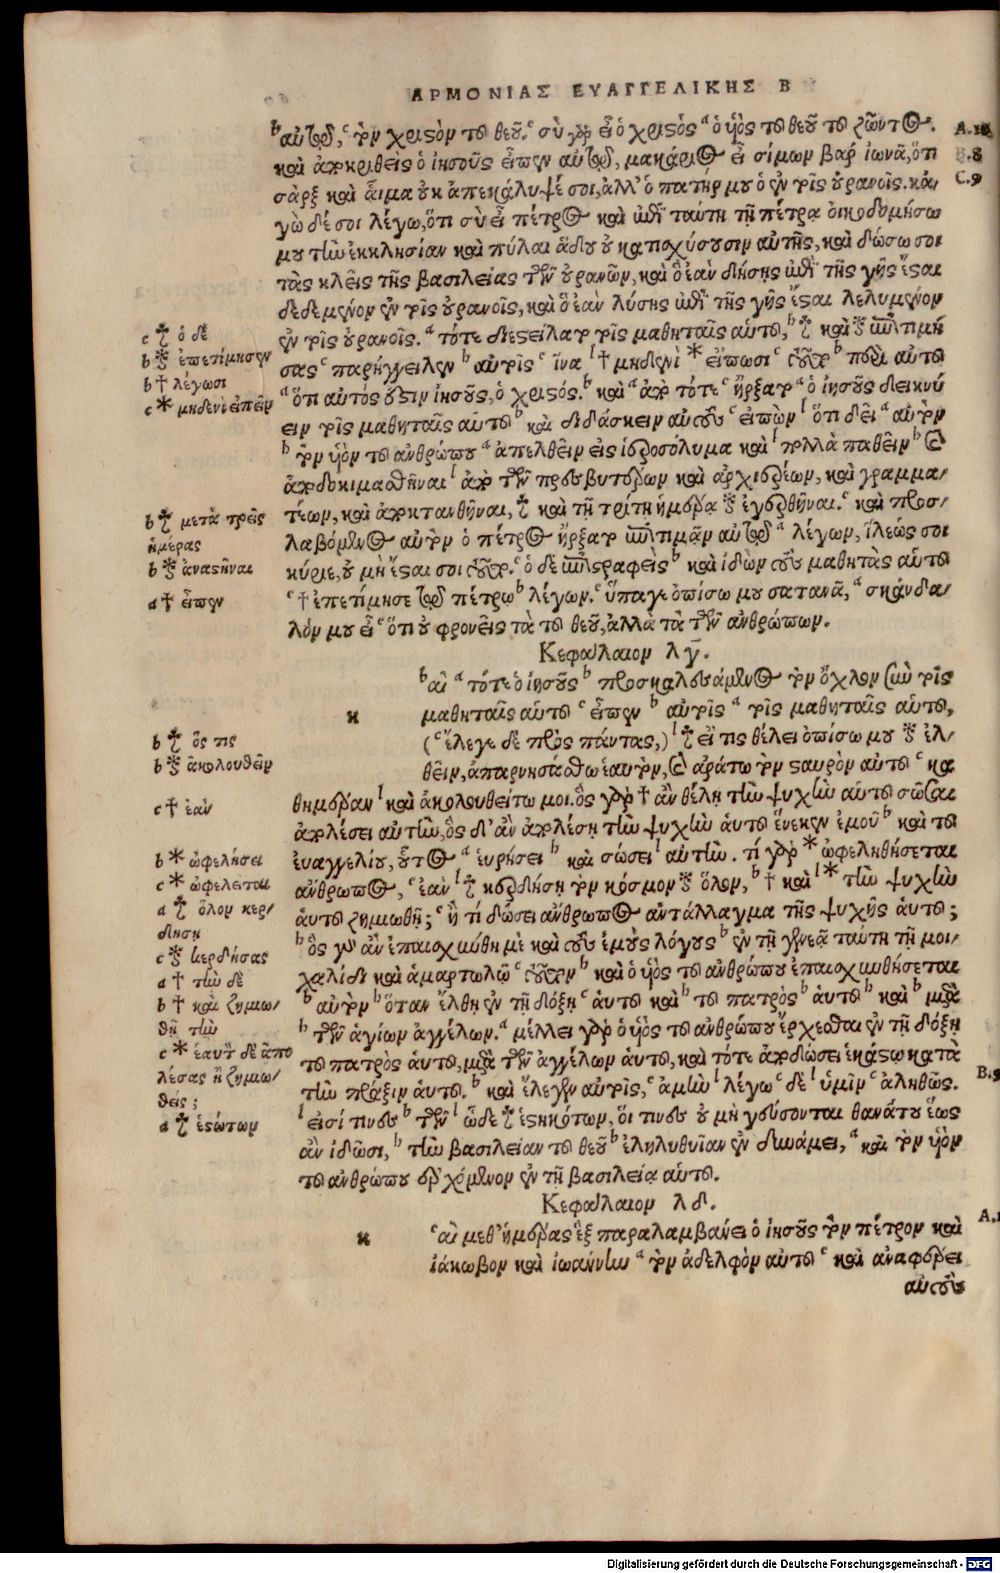 ΑΡΜΟΝΙΑΣ ΕΥΑΓΓΕΛΙΚΗΣ Β
ᵇαὐτῷ, ᶜτὸν χριστὸν τοῦ θεοῦ. ᶜσὺ γὰρ εἶ ὁ χριστός ᵃὁ υἱὸς τοῦ θεοῦ τοῦ ζῶντος.
A.16
καὶ ἀποκριθεὶς ὁ ἰησοῦς εἶπεν αὐτῷ, μακάριος εἶ σίμων βὰρ ἰωνᾶ, ὅτι
B.8
σὰρξ καὶ αἷμα οὐκ ἀπεκάλυψέ σοι, ἀλλ' ὁ πατήρ μου ὁ ἐν τοῖς οὐρανοῖς. κἀ/
C.9
γὼ δέ σοι λέγω, ὅτι σὺ εἶ πέτρος καὶ ἐπὶ ταύτῃ τῇ πέτρᾳ οἰκοδομήσω
μου τὴν ἐκκλησίαν καὶ πύλαι ᾅδου οὐ κατισχύσουσιν αὐτῆς, καὶ δώσω σοι
τὰς κλεῖς τῆς βασιλείας τῶν οὐρανῶν, καὶ ὃ ἐὰν δήσῃς ἐπὶ τῆς γῆς ἔσται
δεδεμένον ἐν τοῖς οὐρανοῖς, καὶ ὃ ἐὰν λύσῃς ἐπὶ τῆς γῆς ἔσται λελυμένον
c ☩ ὁ δὲ
ἐν τοῖς οὐρανοῖς. ᵃτότε διεστείλατο τοῖς μαθηταῖς αὑτοῦ, ᵇ☩ καὶ ⁑ ἐπιτιμή
b⁑ ἐπετίμησεν
σας ᶜπαρήγγειλεν ᵇαὐτοῖς ᶜἵνα ˡ† μηδενὶ * εἴπωσι ᶜτοῦτο ᵇπερὶ αὐτοῦ
b† λέγωσι
ᵃὅτι αὐτός ἐστιν ἰησοῦς, ὁ χριστός. ᵇκαὶ ᵃἀπὸ τότε ᶜἤρξατο ᵃὁ ἰησοῦς δεικνύ
c * μηδενὶ εἰπεῖν
ειν τοῖς μαθηταῖς αὑτοῦ ᵇκαὶ διδάσκειν αὐτοὺς ᶜεἰπὼν ˡὅτι δεῖ ᵃαὐτὸν
ᵇτὸν υἱὸν τοῦ ἀνθρώπου ᵃἀπελθεῖν εἰς ἱεροσόλυμα καὶ ˡπολλὰ παθεῖν ᵇκαὶ
ἀποδοκιμασθῆναι ˡἀπὸ τῶν πρεσβυτέρων καὶ ἀρχιερέων, καὶ γραμμα/
b ☩ μετὰ τρεῖς
ἡμέρας
τέων, καὶ ἀποκτανθῆναι, ☩ καὶ τῇ τρίτῃ ἡμέρᾳ ⁑ ἐγερθῆναι. ᶜκαὶ προσ/
λαβόμενος αὐτὸν ὁ πέτρος ἤρξατο ἐπιτιμᾶν αὐτῷ ᵃλέγων, ἵλεώς σοι
b ⁑ ἀναστῆναι
κύριε, οὐ μὴ ἔσται σοι τοῦτο. ᶜὁ δὲ ἐπιστραφεὶς ᵇκαὶ ἰδὼν τοὺς μαθητὰς αὑτοῦ
a † εἶπεν
ᶜ† ἐπετίμησε τῷ πέτρῳ ᵇλέγων. ᶜὕπαγε ὀπίσω μου σατανᾶ, ᵃσκάνδα/
λόν μου εἶ ᶜὅτι οὐ φρονεῖς τὰ τοῦ θεοῦ, ἀλλὰ τὰ τῶν ἀνθρώπων.
Κεφάλαιον λγ.
κ
ᵇαὶ ᵃτότε ὁ ἰησοῦς ᵇπροσκαλεσάμενος τὸν ὄχλον σὺν τοῖς
μαθηταῖς αὑτοῦ ᶜεἶπεν ᵇαὐτοῖς ᵃτοῖς μαθηταῖς αὑτοῦ,
b ☩ ὅς τις
(ᶜἔλεγε δὲ πρὸς πάντας,) ˡ☩ εἴ τις θέλει ὀπίσω μου ⁑ ἐλ/
b ⁑ ἀκολουθεῖν
θεῖν, ἀπαρνησάσθω ἑαυτὸν, καὶ ἀράτω τὸν σταυρὸν αὑτοῦ ᶜκα
c † ἐὰν
θημέραν ˡκαὶ ἀκολουθείτω μοι. ὃς γὰρ † ἂν θέλῃ τὴν ψυχὴν αὑτοῦ σῶσαι
ἀπολέσει αὐτὴν, ὃς δ' ἂν ἀπολέσῃ τὴν ψυχὴν αὑτοῦ ἕνεκεν ἐμοῦ ᵇκαὶ τοῦ
b * ὠφελήσει
εὐαγγελίου, οὗτος ᵃεὑρήσει ᵇκαὶ σώσει ˡαὐτὴν. τί γὰρ * ὠφεληθήσεται
c * ὠφελεῖται
ἄνθρωπος, ᶜἐὰν ˡ☩ κερδήσῃ τὸν κόσμον ⁑ ὅλον, ᵇ† καὶ ˡ* τὴν ψυχὴν
a ☩ ὅλον κερ/
δήσῃ
αὑτοῦ ζημιωθῇ; ᶜἢ τί δώσει ἄνθρωπος ἀντάλλαγμα τῆς ψυχῆς αὑτοῦ;
c ⁑ κερδήσας
ᵇὃς γὰρ ἂν ἐπαισχυνθῇ μὲ καὶ τοὺς ἐμοὺς λόγους ᵇἐν τῇ γενεᾷ ταύτῃ τῇ μοι/
a † τὴν δὲ
χαλίδι καὶ ἁμαρτωλῷ ᶜτοῦτον ᵇκαὶ ὁ υἱὸς τοῦ ἀνθρώπου ἐπαισχυνθήσεται
b † καὶ ζημιω/
θῇ τὴν
ᵇαὐτὸν ᵇὅταν ἔλθῃ ἐν τῇ δόξῃ ᶜαὑτοῦ καὶ ᵇτοῦ πατρὸς ᵇαὑτοῦ ᵇκαὶ ᵇμετὰ
ᵇτῶν ἁγίων ἀγγέλων. ᵃμέλλει γὰρ ὁ υἱὸς τοῦ ἀνθρώπου ἔρχεσθαι ἐν τῇ δόξῃ
c * ἑαυτὸν δὲ ἀπο
λέσας ἢ ζημιω/
θείς;
τοῦ πατρὸς αὑτοῦ, μετὰ τῶν ἀγγέλων αὑτοῦ, καὶ τότε ἀποδώσει ἑκάστῳ κατὰ
τὴν πρᾶξιν αὑτοῦ. ᵇκαὶ ἔλεγεν αὐτοῖς, ᶜἀμὴν ˡλέγω ᶜδὲ ˡὑμῖν ᶜἀληθῶς.
B.9
a ☩ ἑστώτων
ˡεἰσί τινες ᵇτῶν ˡὧδε ☩ ἑστηκότων, οἵ τινες οὐ μὴ γεύσονται θανάτου ἕως
ἂν ἴδωσι, ᵇτὴν βασιλείαν τοῦ θεοῦ ᵇἐληλυθυῖαν ἐν δυνάμει, ᵃκαὶ τὸν υἱὸν
τοῦ ἀνθρώπου ἐρχόμενον ἐν τῇ βασιλείᾳ αὑτοῦ.
Κεφάλαιον λδ.
κ
ᶜαὶ μεθ' ἡμέρας ἓξ παραλαμβάνει ὁ ἰησοῦς τὸν πέτρον καὶ
ἰάκωβον καὶ ἰωάννην ᵃτὸν ἀδελφὸν αὐτοῦ ᶜκαὶ ἀναφέρει
αὐτοὺς
Digitalisierung gefördert durch die Deutsche Forschungsgemeinschaft - DFG